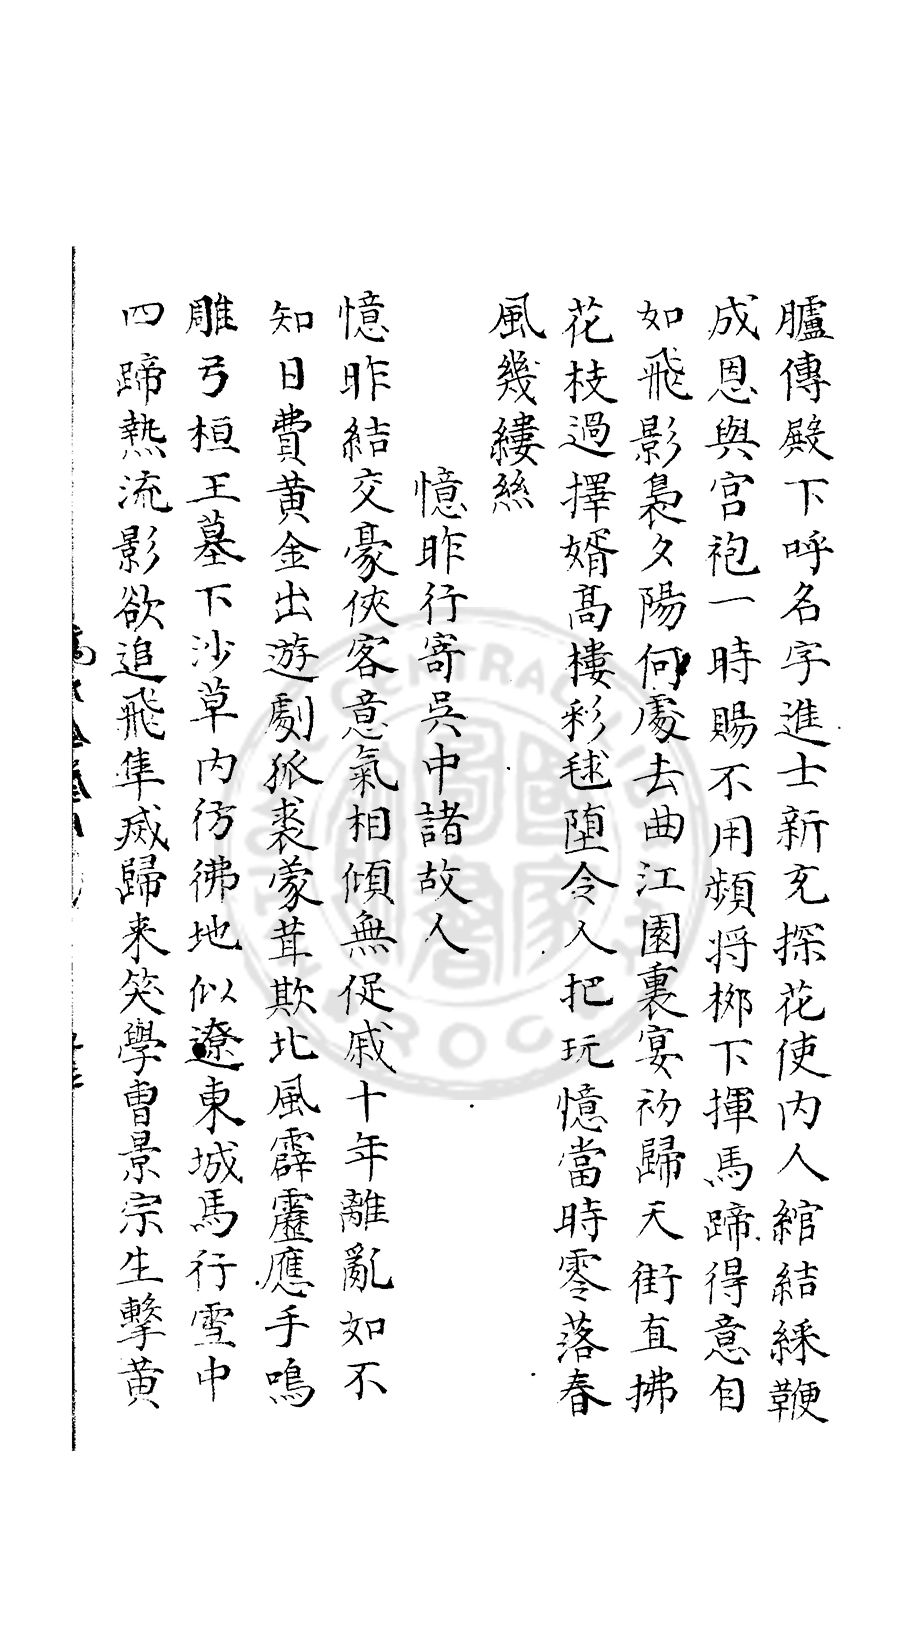 臚傳殿下呼名字進士新充探花使内人綰結綵鞭
成恩與宫袍一時賜不用頻将栁下揮馬蹄得意自
如飛影裊夕陽何處去曲江園裏宴初歸天街直拂
花枝過擇婿髙樓彩毬墮令人把玩憶當時零落春
風幾縷絲
憶昨行寄吳中諸故人
憶昨結交豪俠客意氣相傾無促戚十年離亂如不
知日費黄金出遊劇狐裘蒙茸欺北風霹靂應手鳴
雕弓桓王墓下沙草内彷彿地似遼東城馬行雪中
四蹄熱流影欲追飛隼㓕歸来笑學曹景宗生擊黄